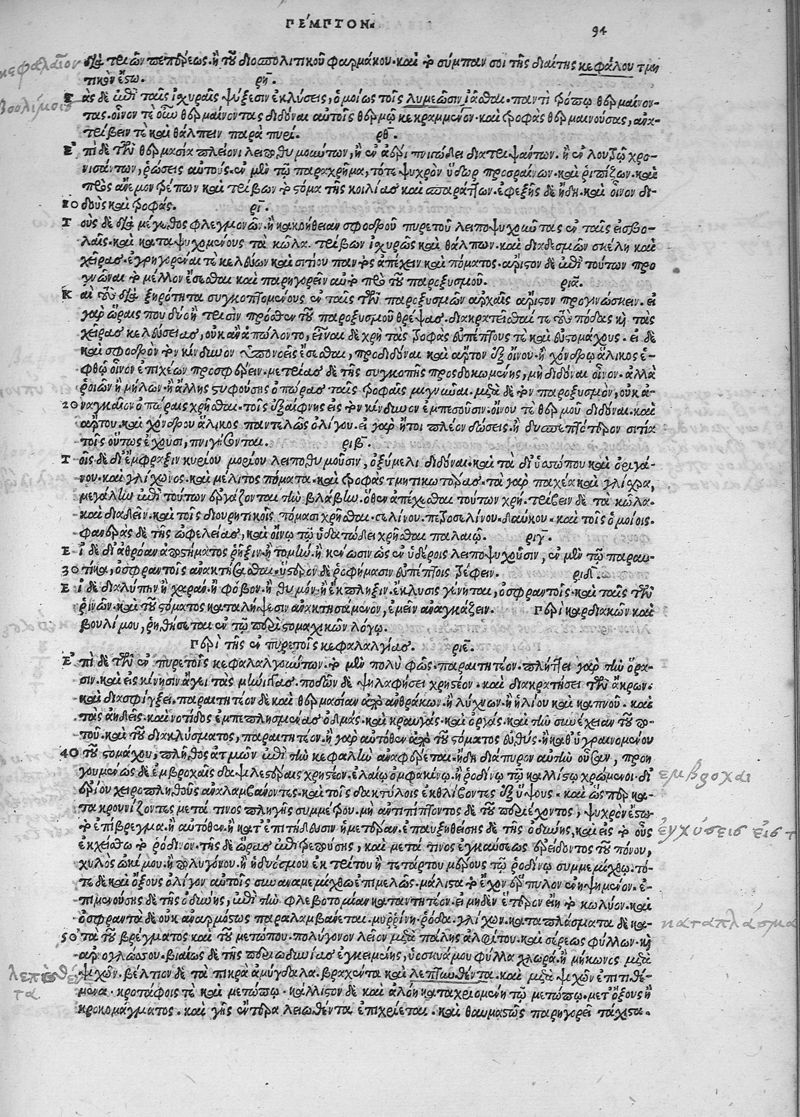 ΠΕΜΠΤΟΝ.
94
διὰ τριῶν πεπέρεως. ἢ τοῦ διοσπολιτικοῦ φαρμάκου. καὶ τὸ σύμπαν σοι τῆς διαίτης κεφάλου τμη
κεφάλαιον
τικὸν ἔστω. ρη.
Τὰς δὲ ἐπὶ ταῖς ἰσχυραῖς ψύξεσιν ἐκλύσεις, ὁμοίως τοῖς λυμεῶσιν ἰᾶσθαι. παντὶ τρόπῳ θερμαίνον-
τας. οἶνόν τε οὕτω θερμαίνοντας διδόναι αὐτοῖς θερμῷ κεκραμμένον. καὶ τροφὰς θερμαινούσας, ἀνα-
τρίβειν τε καὶ θάλπειν παρὰ πυρί. ρθ.
Ἐπὶ δὲ τῶν θερμασίᾳ πλείονι λειποθυμούντων, ἢ ἐν ἀέρι πνιγώδει διατριψάντων. ἢ ἐν λουτρῷ χρο-
νισάντων, ῥώσεις αὐτοὺς. ἐν μὲν τῷ παραχρῆμα, τότε ψυχρὸν ὕδωρ προσραίνων. καὶ ῥιπίζων. καὶ
πρὸς ἄνεμον τρέπων καὶ τρίβων τὸ στόμα τῆς κοιλίας καὶ σπαράττων. ἐφεξῆς δὲ ἤδη καὶ οἶνον δι-
δοὺς καὶ τροφάς. ρι.
Τοὺς δὲ διὰ μέγεθος φλεγμονῶν. ἢ κακοήθειαν σφοδροῦ πυρετοῦ λειποψυχοῦντας ἐν ταῖς εἰσβο-
λαῖς. καὶ καταψυχομένους τὰ κῶλα. τρίβων ἰσχυρῶς καὶ θάλπων. καὶ διαδεσμῶν σκέλη καὶ
χεῖρας. ἐγρηγορέναι τε κελεύων καὶ σιτίου παντὸς ἀπέχειν καὶ πόματος. ἄριστον δὲ ἐπὶ τούτων προ
γνῶναι τὸ μέλλον ἔσεσθαι καὶ παρηγορεῖν αὐτὸ πρὸ τοῦ παροξυσμοῦ. ρια.
Καὶ τοὺς διὰ ξηρότητα συγκοπτομένους ἐν ταῖς τῶν παροξυσμῶν ἀρχαῖς ἄριστον προγνώσκειν. εἰ
γὰρ ὥραις που δύο ἢ τρισὶν πρόσθεν τοῦ παροξυσμοῦ θρέψας. διακρατεῖσθαί τε τοὺς πόδας καὶ τὰς
χεῖρας κελεύσειας, οὐκ ἀνάπλοντο, εἶναι δὲ χρὴ τὰς τροφὰς εὐπέπτους τε καὶ εὐστομάχους. εἰ δὲ
καὶ σφοδρὸν τὸν κίνδυνον ὑπονοεῖς ἔσεσθαι, προδιδόναι καὶ ἄρτον ἐξ οἴνου. ἢ χόνδρῳ ἄλικος ἑ-
φθῷ οἶνον ἐπιχέων προσφέρειν. μετρίας δὲ τῆς συγκοπῆς προσδοκωμένης, μὴ διδόναι οἶνον. ἀλλὰ
ῥοιῶν ἢ μήλων. ἢ ἄλλης στυφούσης ὀπώρας ταῖς τροφαῖς μιγνῦναι. μετὰ δὲ τὸν παροξυσμὸν, οὐκ ἀ-
20 ναγκαῖον ὀπώραις χρῆσθαι. τοῖς ἐξαίφνης εἰς τὸν κίνδυνον ἐμπεσοῦσιν. οἴνου τε θερμοῦ διδόναι. καὶ
ἄρτου. καὶ χόνδρου ἄλικος παντελῶς ὀλίγου. εἰ γὰρ ἤτοι πλέον δώσεις. ἢ δυσπεπτότερον σιτία
τοῖς οὕτως ἔχουσι, πνιγήσονται. ριβ.
Τοῖς δὲ δι' ἔμφραξιν κυρίου μορίου λειποθυμοῦσιν, ὀξύμελι διδόναι. καὶ τὰ δι' ὑσσώπου καὶ ὀριγά-
νου. καὶ γλίχωνος. καὶ μέλιτος πόματα. καὶ τροφὰς τμητικωτέρας. τὰ γὰρ παχέα καὶ γλίσχρα,
μεγάλην ἐπὶ τούτων ἐργάζονται τὴν βλάβην. ὅθεν ἀπέχεσθαι τούτων χρή. τρίβειν δὲ τὰ κῶλα.
καὶ διαδεῖν. καὶ τοῖς διουρητικοῖς πόμασι χρῆσθαι. σελίνου. πετροσελίνου. δαύκου. καὶ τοῖς ὁμοίοις.
φανερᾶς δὲ τῆς ὠφελείας, καὶ οἴνῳ τῷ ὑδατώδει χρῆσθαι παλαιῷ. ριγ.
Εἰ δὲ δι' ἀθρόαν ἀποστήματος ῥῆξιν. ἢ τομὴν. ἢ κένωσιν ὡς ἐν ὑδέροις λειποψυχοῦσιν, ἐν μὲν τῷ παραυ-
30 τίκα, ὀσφραντοῖς ἀνακτήσασθαι. ὕστερον δὲ ῥοφήμασιν εὐπέπτοις τρέφειν. ριδ.
Εἰ δὲ διὰ λύπην ἢ χαρὰν. ἢ φόβον. ἢ θυμὸν. ἢ ἔκπληξιν. ἔκλυσις γίνηται, ὀσφραντοῖς. καὶ ταῖς τῶν
ῥινῶν. καὶ τοῦ στόματος καταλήψεσιν ἀνακτησάμενον, ἐμεῖν ἀναγκάζειν. Περὶ καρδιακῶν καὶ
βουλίμου, ῥηθήσεται ἐν τῷ περὶ στομαχικῶν λόγῳ.
Περὶ τῆς ἐν πυρετοῖς κεφαλαλγίας. ριε.
Ἐπὶ δὲ τῶν ἐν πυρετοῖς κεφαλαλγούντων. τὸ μὲν πολὺ φῶς. παραιτητέον. πλήττει γὰρ τὴν ὅρα-
σιν. καὶ εἰς κίνησιν ἄγει τὰς μήνιγγας. ποδῶν δὲ ψηλαφήσει χρηστέον. καὶ διακρατήσει τῶν ἄκρων.
καὶ διασφίγξει. παραιτητέον δὲ καὶ θερμασίαν ἀπὸ ἀνθράκων. ἢ λύχνων. ἢ ἡλίου καὶ καπνοῦ. καὶ
τὰς ἀηδεῖς. καὶ νοτίδος ἐμπεπλησμένας ὀδμάς. καὶ κραυγάς. καὶ ὀργάς. καὶ τὴν συνέχειαν τοῦ πο-
τοῦ. καὶ τοῦ διακλύσματος, παραιτητέον. ἢ γὰρ αὐτόθεν ἀπὸ τοῦ στόματος εὐθὺς. ἢ καθυγραινομένου
40 τοῦ στομάχου, πλῆθος ἀτμῶν ἐπὶ τὴν κεφαλὴν ἀναφέρεται. ἤδη διάπυρον αὐτὴν οὖσαν, προη
γουμένως δὲ ἐμβροχαῖς χρηστέον. ἐλαίῳ ὀμφακίνῳ. ἢ ῥοδίνῳ τῷ καλλίστῳ χρώμενοι. δι'
ἐμβροχαὶ
ἐρίου χειροπληθοῦς ἀναλαμβάνοντες. καὶ τοῖς δακτύλοις ἐκθλίβοντες ἐξ ὕψους. καὶ ὥσπερ κα-
τακρουνίζοντες μετά τινος πληγῆς συμμέτρου. μὴ ἀντιπίπτοντος δὲ τοῦ περιέχοντος, ψυχρὸν ἔστω
τὸ ἐπίβρεγμα. ἢ αὐτόθεν. ἢ κατ' ἐπιτήδευσιν ἡμετέραν. ἐπαυξηθείσης δὲ τῆς ὀδύνης, καὶ εἰς τὸ οὖς
ἐγχύσεις εἰς τ
ἐκχείσθω τὸ ῥόδινον. τῆς δὲ ὥρας ἐπιτρεπούσης, καὶ μετά τινος ἐγκαύσεως ἐρείδοντος τοῦ πόνου,
χυλὸς ὠκίμου. ἢ πολυγόνου. ἢ ἡδυόσμου ἐκ τρίτου ἢ τετάρτου μέρους τῷ ῥοδίνῳ συμμεμίχθω. τό-
τε δὲ καὶ ὄξους ὀλίγον αὐτοῖς συναναμεμίχθω ἐπιμελῶς. μάλιστα τὸ ἔχον ἕρπυλλον ἐνηψημένον. ἐ-
πιμενούσης δὲ τῆς ὀδύνης, ἐπὶ τὴν φλεβοτομίαν καταντητέον. εἰ μηδὲν ἕτερον εἴη τὸ κωλῦον. καὶ
ὀσφραντὰ δὲ οὐκ ἀναρμόστως παραλαμβάνεται. μυρσίνη. ῥόδα. γλίχων. καταπλάσματα δὲ κα-
καταπλάσμα
50 τὰ τοῦ βρέγματος καὶ τοῦ μετώπου. πολύγονον λεῖον μετὰ πάλης ἀλφίτου. καὶ σέρεως φύλλων. καὶ
ἀρνογλώσσου. βιαίως δὲ τῆς περιωδυνίας ἐγκειμένης, ὑοσκυάμου φύλλα χλωρὰ. ἢ μήκωνος μετὰ
ψιχῶν. βέλτιον δὲ τὰ πικρὰ ἀμύγδαλα. βραχέντα καὶ λεπισθέντα. καὶ μετὰ ψιχῶν ἐπιτιθέ-
λεπισθέντα
μενα. κροτάφοις τε καὶ μετώπῳ. κάλλιστον δὲ καὶ ἀλόη καταχριομένη τῷ μετώπῳ. μετ' ὄξους ἢ
κροκομάγματος. καὶ γῆς ἔντερα λειωθέντα ἐπιχρίεται. καὶ θαυμαστῶς παρηγορεῖ τάχιστα.